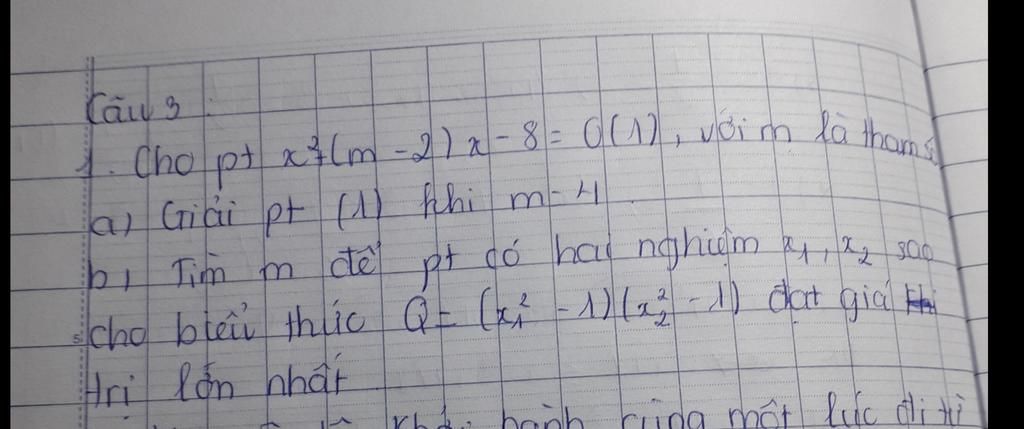 Câu 3.
1. Cho pt x²+(m-2)x-8=0(1), với m là tham số
a) Giải pt (1) khi m=4
b, Tìm m để pt có hai nghiệm x₁, x₂ sao
cho biểu thức Q=(x₁²-1)(x₂²-1) đạt giá
trị lớn nhất
hành cùng một lúc đi từ